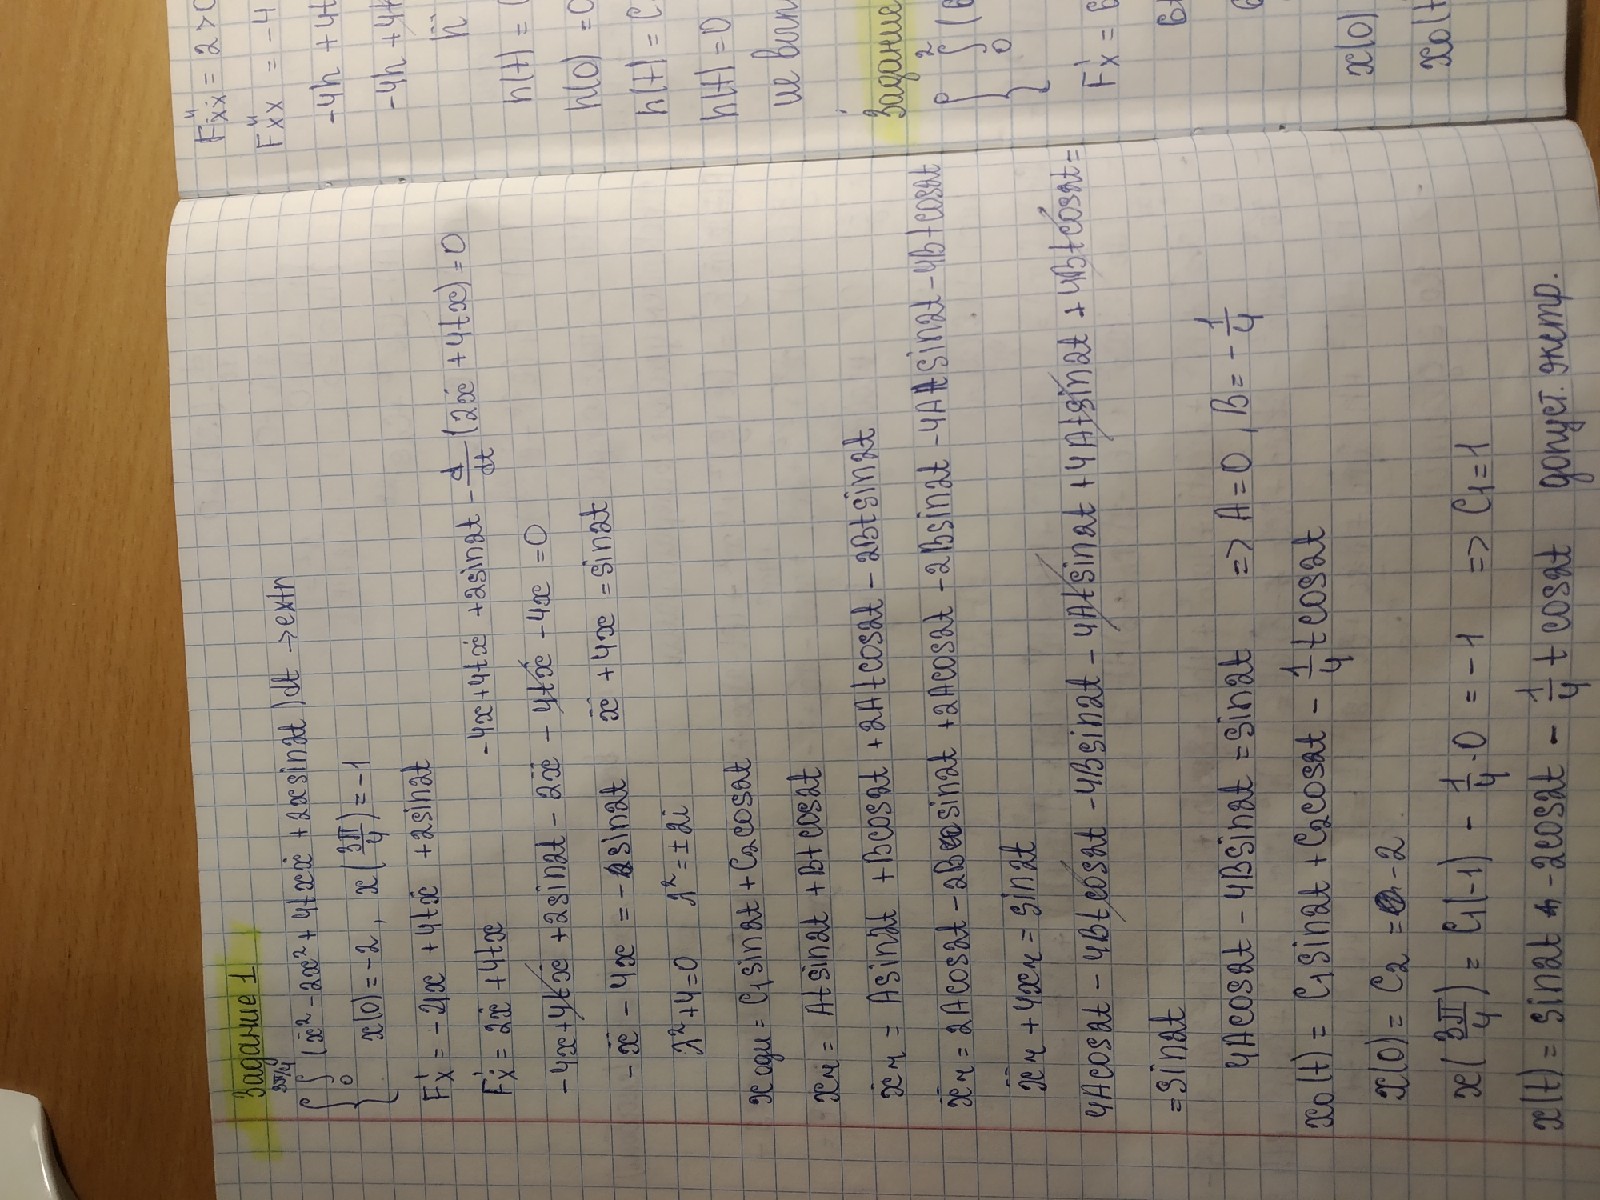 Задание 1
∫₀^{3π/4} (ẋ² - 2x² + 4txẋ + 2xsin2t)dt → extr
x(0) = -2, x(3π/4) = -1
F'x = -4x + 4tẋ + 2sin2t
F'ẋ = 2ẋ + 4tx    -4x + 4tẋ + 2sin2t - d/dt (2ẋ + 4tx) = 0
-4x + 4tẋ + 2sin2t - 2ẍ - 4tẋ - 4x = 0
-ẍ - 4x = -sin2t    ẍ + 4x = sin2t
λ² + 4 = 0    λ² = ±2i
x одн = C₁sin2t + C₂cos2t
xч = Atsin2t + Btcos2t
ẋч = Asin2t + Bcos2t + 2Atcos2t - 2Btsin2t
ẍч = 2Acos2t - 2Bsin2t + 2Acos2t - 2Bsin2t - 4Atsin2t - 4Btcos2t
ẍч + 4xч = sin2t
4Acos2t - 4Btcos2t - 4Bsin2t - 4Atsin2t + 4Atsin2t + 4Btcos2t =
= sin2t
4Acos2t - 4Bsin2t = sin2t    => A = 0, B = -1/4
x₀(t) = C₁sin2t + C₂cos2t - 1/4 tcos2t
x(0) = C₂ = -2
x(3π/4) = C₁(-1) - 1/4 · 0 = -1    => C₁ = 1
x(t) = sin2t - 2cos2t - 1/4 t cos2t    допуст. экстр.
F''ẋẋ = 2 > 0
F''xẋ = -4
-4h + 4t
-4h + 4t
ḧ
h(t) =
h(0) = 0
h(t) = C
h(t) = 0
не вып
Задание
∫₀² (6
F'x = 6
6t
6
x(0)
x₀(t)